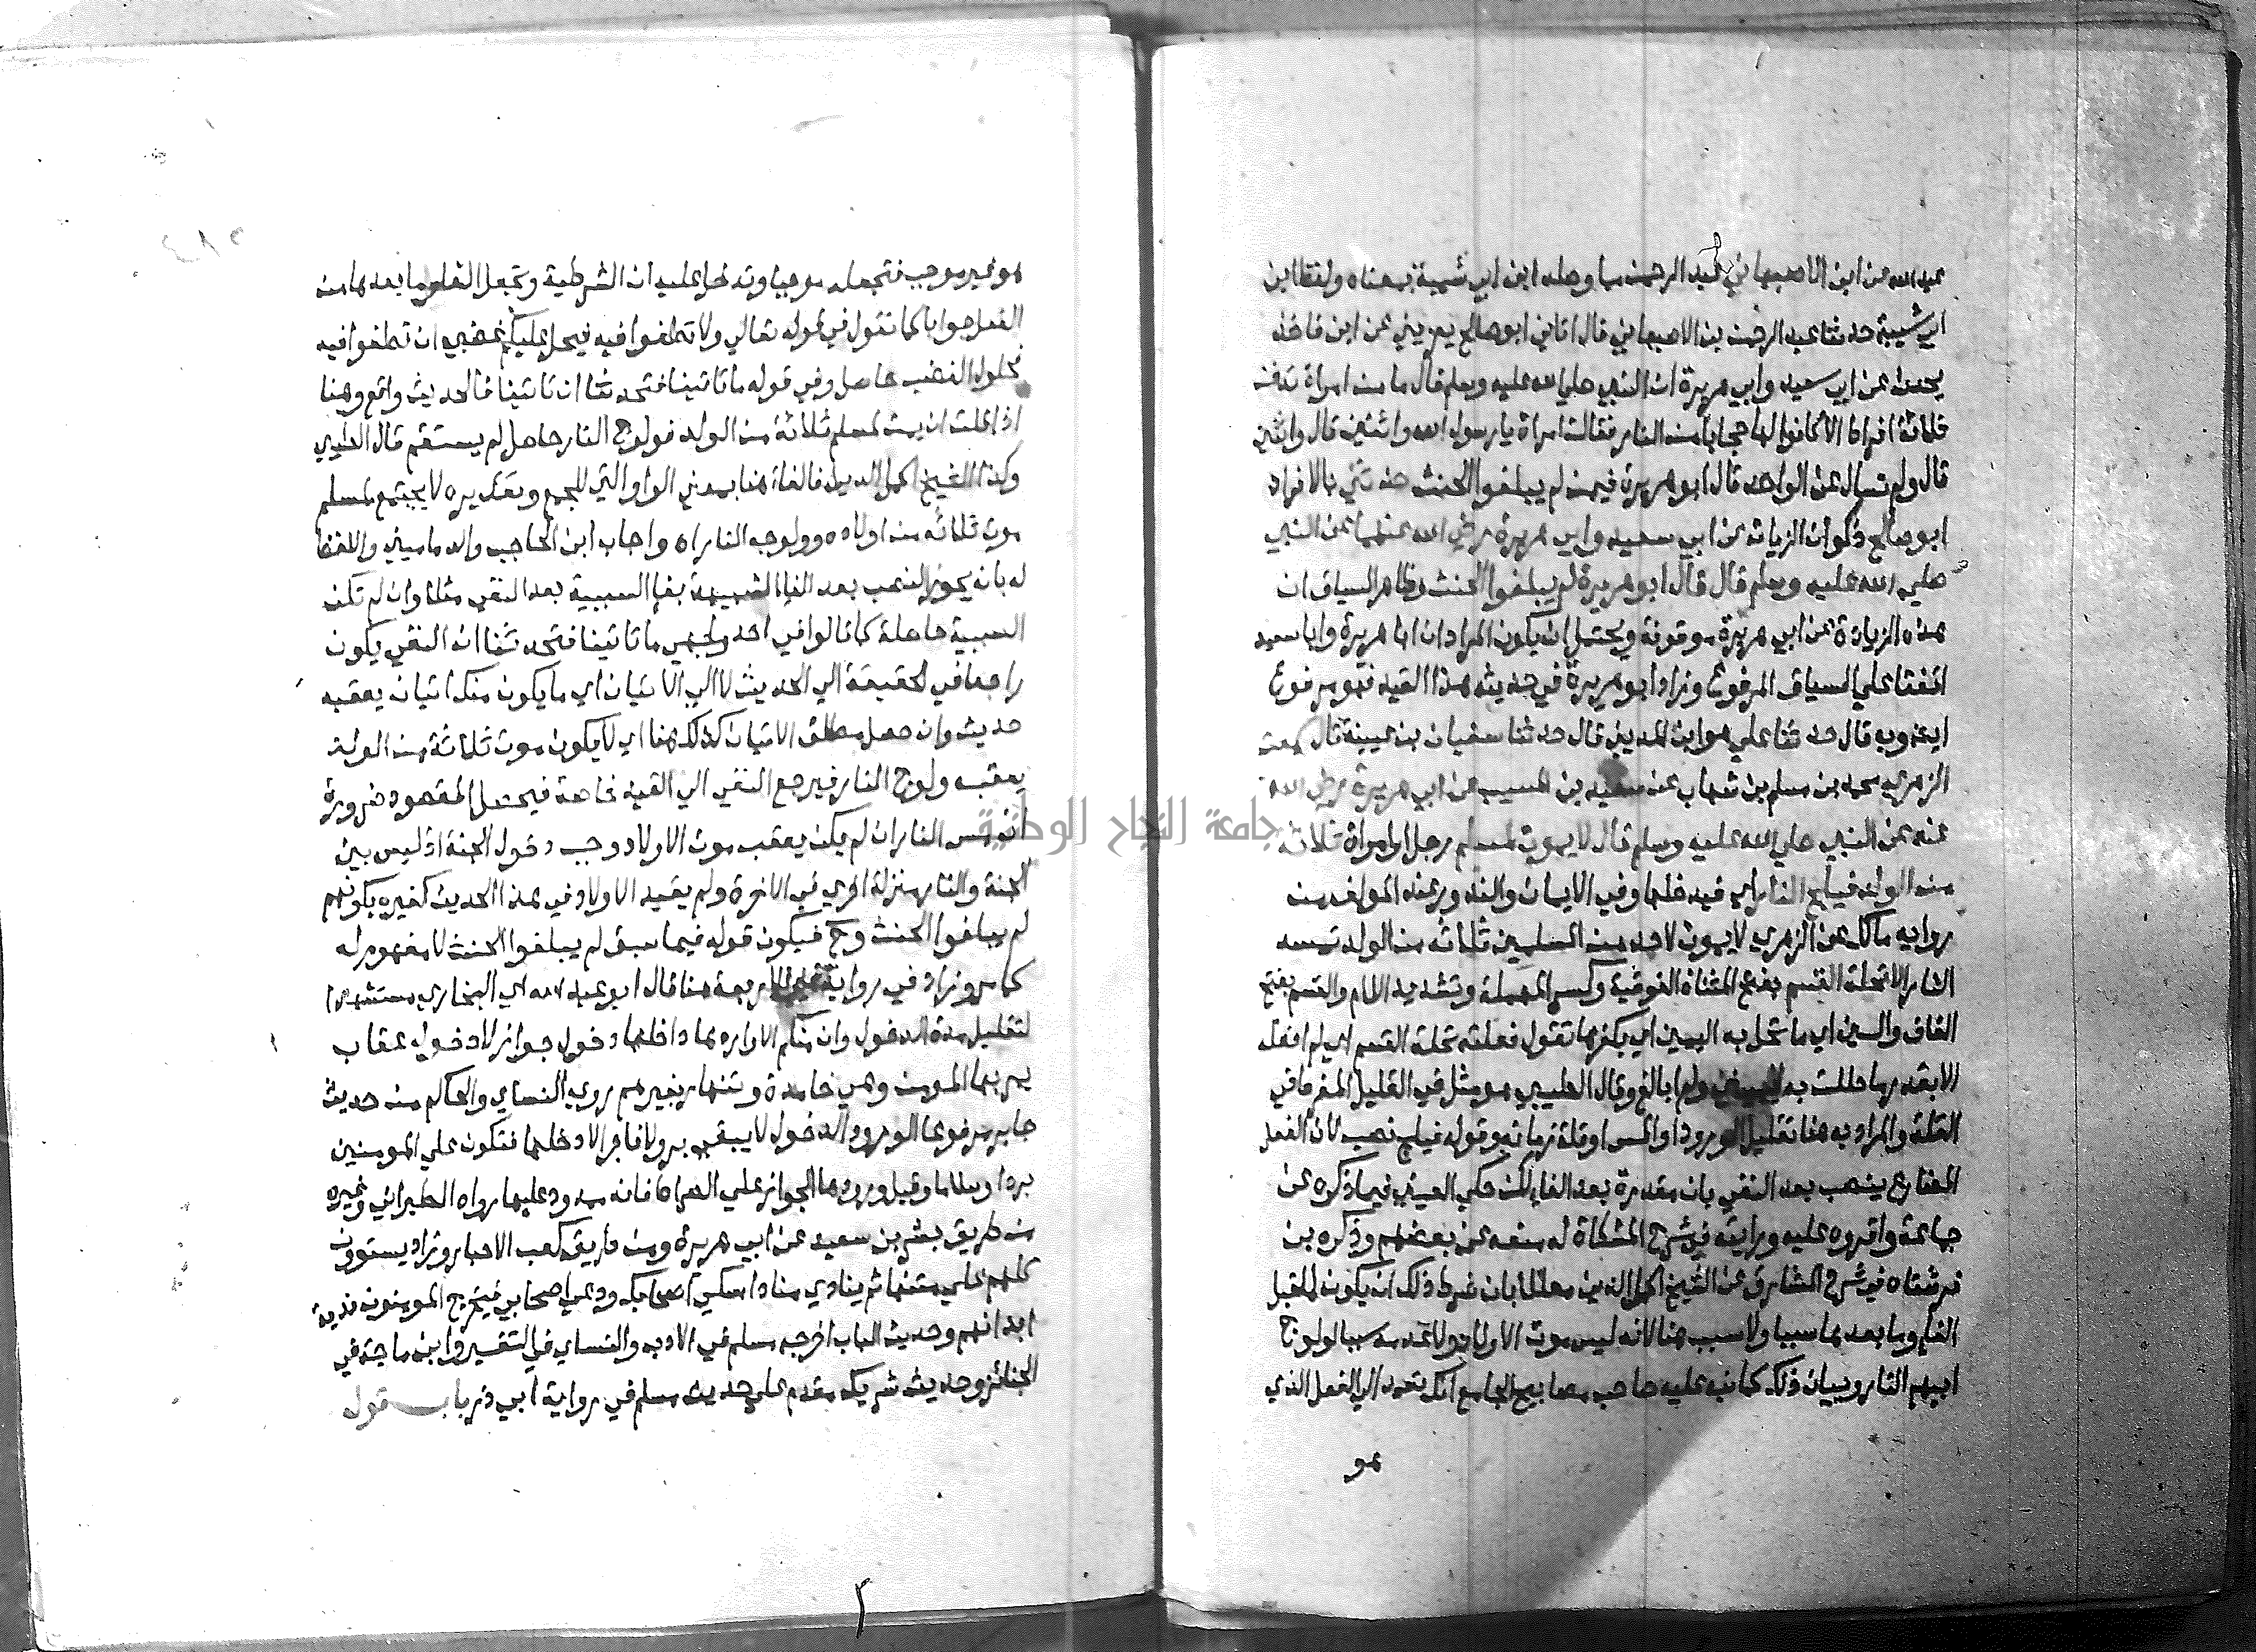 عبد الله عن ابن الاصبهاني عبد الرحمن مما وصله ابن ابي شيبة بمعناه ولفظ ابن
ابي شيبة حدثنا عبد الرحمن بن الاصبهاني قال اتاني ابو صالح يعزيني عن ابن فاخذ
يحدث عن ابي سعيد وابي هريرة ان النبي صلي الله عليه وسلم قال ما من امراة تدفن
ثلاثة افراط الا كانوا لها حجابا من النار فقالت امراة يا رسول الله واثنين قال واثنين
قال ولم تسال عن الواحد قال ابو هريرة فيمن لم يبلغوا الحنث حدثني بالافراد
ابو صالح ذكوان الزيات عن ابي سعيد وابي هريرة رضي الله عنهما عن النبي
صلي الله عليه وسلم قال قال ابو هريرة لم يبلغوا الحنث وظاهر السياق ان
هذه الزيادة عن ابي هريرة موقوفة ويحتمل ان يكون المراد ان ابا هريرة وابا سعيد
اتفقا علي السياق المرفوع وزاد ابو هريرة في حديثه هذا القيد فهو مرفوع
ايضا وبه قال حدثنا علي هو ابن المديني قال حدثنا سفيان بن عيينة قال سمعت
الزهري محمد بن مسلم بن شهاب عن سعيد بن المسيب عن ابي هريرة رضي الله
عنه عن النبي صلي الله عليه وسلم قال لا يموت لمسلم رجل او امراة ثلاثة
من الولد فيلج النار اي فيدخلها وفي الايمان والنذور عند المولف من
رواية مالك عن الزهري لا يموت لاحد من المسلمين ثلاثة من الولد تمسه
النار الا تحلة القسم بفتح المثناة الفوقية وكسر المهملة وتشديد اللام والقسم بفتح
القاف والسين اي ما تحل به اليمين اي يكفرها تقول فعلته تحلة القسم اي لم افعله
الا بقدر ما حللت به يميني ولم ابالغ وقال الطيبي هو مثل في القليل المفرط في
القلة والمراد به هنا تقليل الورود او المس او قلة زمانه وقوله فيلج نصب لان الفعل
المضارع ينصب بعد النفي بان مقدرة بعد الفاء لكن حكي الطيبي فيما ذكره عن
جماعة واقروه عليه ورايته في شرح المشكاة له منعه عن بعضهم وذكره بن
فرشتاه في شرح المشارق عن الشيخ اكمل الدين معللا بان شرط ذلك ان يكون لما قبل
الفاء وما بعدها سببا ولا سبب هنا لانه ليس موت الاولاد ولا عدمه سببا لولوج
ابيهم النار وبيان ذلك كما نبه عليه صاحب مصابيح الجامع انك تعمد الي الفعل الذي
هو
هو غير موجب فتجعله موجبا وتدخل عليه ان الشرطية وتجعل الفاء وما بعدها من
الفعل جوابا كما تقول في قوله تعالي ولا تطغوا فيه فيحل عليكم غضبي ان تطغوا فيه
فحلول الغضب حاصل وفي قوله ما تاتينا فتحدثنا ان تاتينا فالحديث واقع وهنا
اذا قلت ان يمت لمسلم ثلاثة من الولد فولوج النار حاصل لم يستقم قال الطيبي
وكذا الشيخ اكمل الدين فالفاء هنا بمعني الواو التي للجمع وتقديره لا يجتمع لمسلم
موت ثلاثة من اولاده وولوجه النار اه واجاب ابن الحاجب والدماميني واللفظ
له بانه يجوز النصب بعد الفاء الشبيهة بفاء السببية بعد النفي مثلا وان لم تكن
السببية حاصلة كما قالوا في احد وجهي ما تاتينا فتحدثنا ان النفي يكون
راجعا في الحقيقة الي الحديث لا الي الاتيان اي ما يكون منك اتيان يعقبه
حديث وان حصل مطلق الاتيان كذلك هنا اي لا يكون موت ثلاثة من الولد
يعقبه ولوج النار فيرجع النفي الي القيد خاصة فيحصل المقصود ضرورة
ان مس النار ان لم يكن يعقب موت الاولاد وجب دخول الجنة اذ ليس بين
الجنة والنار منزلة اخري في الاخرة ولم يقيد الاولاد في هذا الحديث كغيره بكونهم
لم يبلغوا الحنث وح فيكون قوله فيما سبق لم يبلغوا الحنث لا مفهوم له
كما مر وزاد في رواية غير الاربعة هنا قال ابو عبد الله اي البخاري مستشهدا
لتقليل مدة الدخول وان منكم الا واردها داخلها دخول جواز لا دخول عقاب
يمر بها المومن وهي خامدة وتنهار بغيرهم روي النساي والحاكم من حديث
جابر مرفوعا الورود الدخول لا يبقي بر ولا فاجر الا دخلها فتكون علي المومنين
بردا وسلاما وقيل ورودها الجواز علي الصراط فانه ممدود عليها رواه الطبراني وغيره
من طريق بشر بن سعيد عن ابي هريرة ومن طريق كعب الاحبار وزاد يستوون
كلهم علي متنها ثم ينادي مناد امسكي اصحابك ودعي اصحابي فيخرج المومنون ندية
ابدانهم وحديث الباب اخرجه مسلم في الادب والنساي في التفسير وابن ماجة في
الجنائز وحديث شريك مقدم علي حديث مسلم في رواية ابي ذر باب قول
جامعة النجاح الوطنية